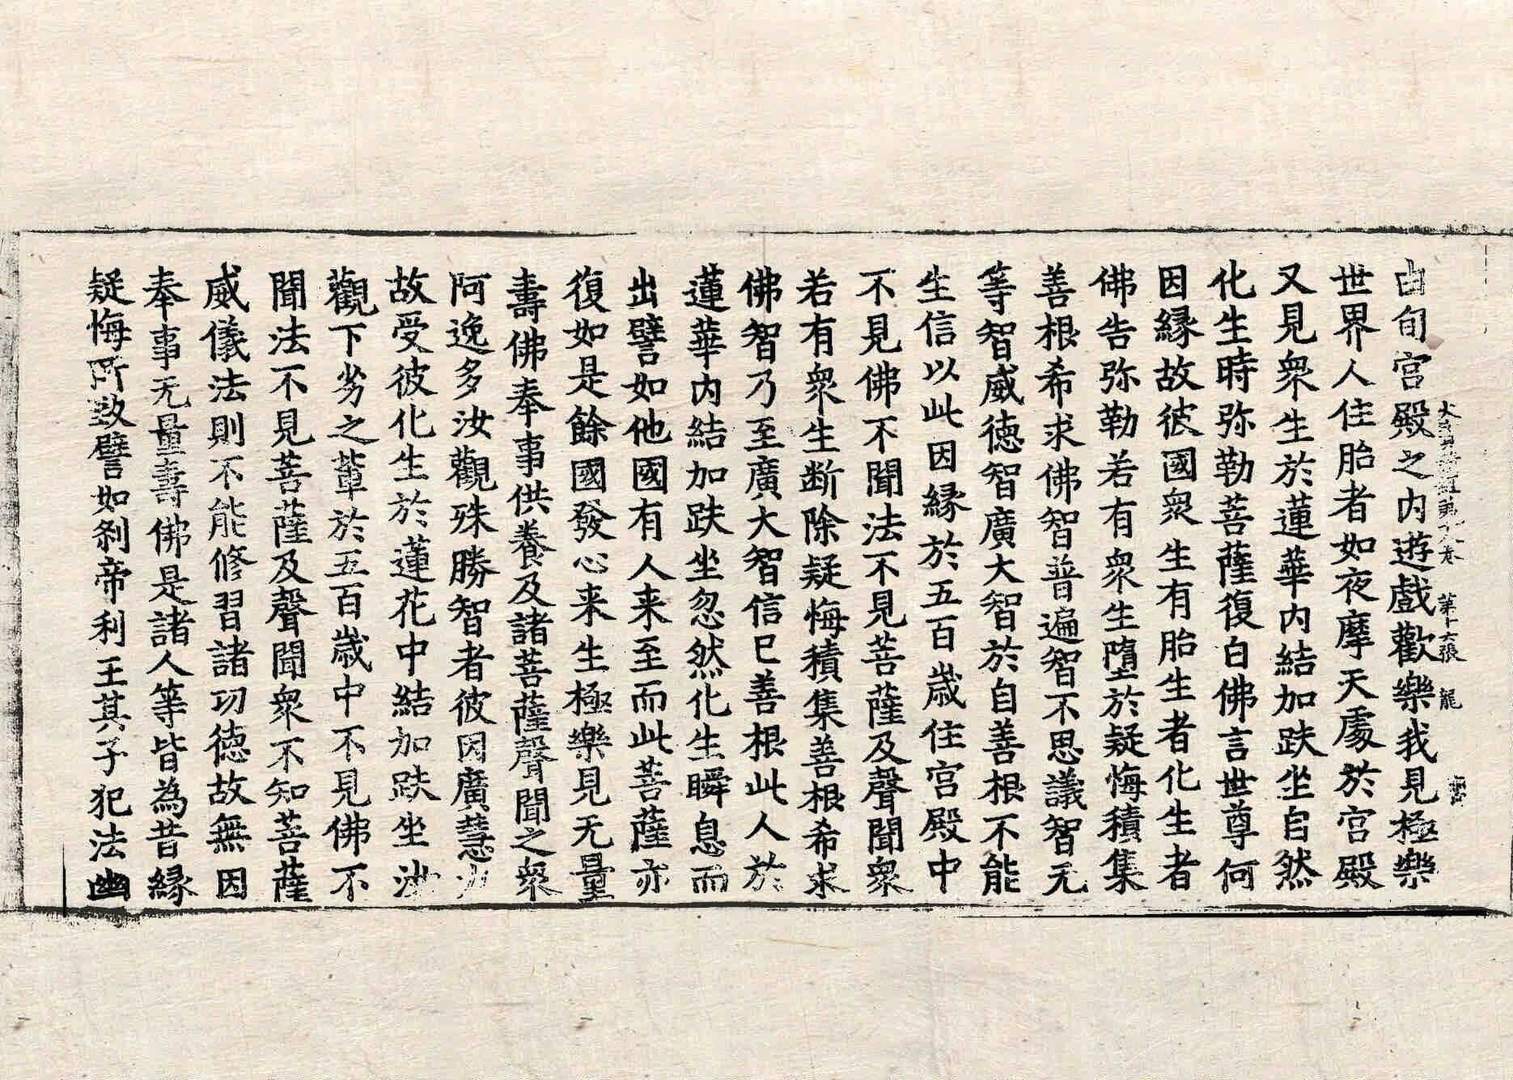 由旬宮殿之内遊戲歡樂我見極樂
世界人住胎者如夜摩天處於宮殿
又見衆生於蓮華内結加趺坐自然
化生時弥勒菩薩復白佛言世尊何
因縁故彼國衆生有胎生者化生者
佛告弥勒若有衆生墮於疑悔積集
善根希求佛智普遍智不思議智无
等智威德智廣大智於自善根不能
生信以此因縁於五百歲住宮殿中
不見佛不聞法不見菩薩及聲聞衆
若有衆生断除疑悔積集善根希求
佛智乃至廣大智信已善根此人於
蓮華内結加趺坐忽然化生瞬息而
出譬如他國有人来至而此菩薩亦
復如是餘國發心来生極樂見无量
壽佛奉事供養及諸菩薩聲聞之衆
阿逸多汝觀殊勝智者彼因廣慧力
故受彼化生於蓮花中結加趺坐汝
觀下劣之輩於五百歲中不見佛不
聞法不見菩薩及聲聞衆不知菩薩
威儀法則不能修習諸功德故無因
奉事无量壽佛是諸人等皆為昔縁
疑悔所致譬如刹帝利王其子犯法幽
第十六張 龍